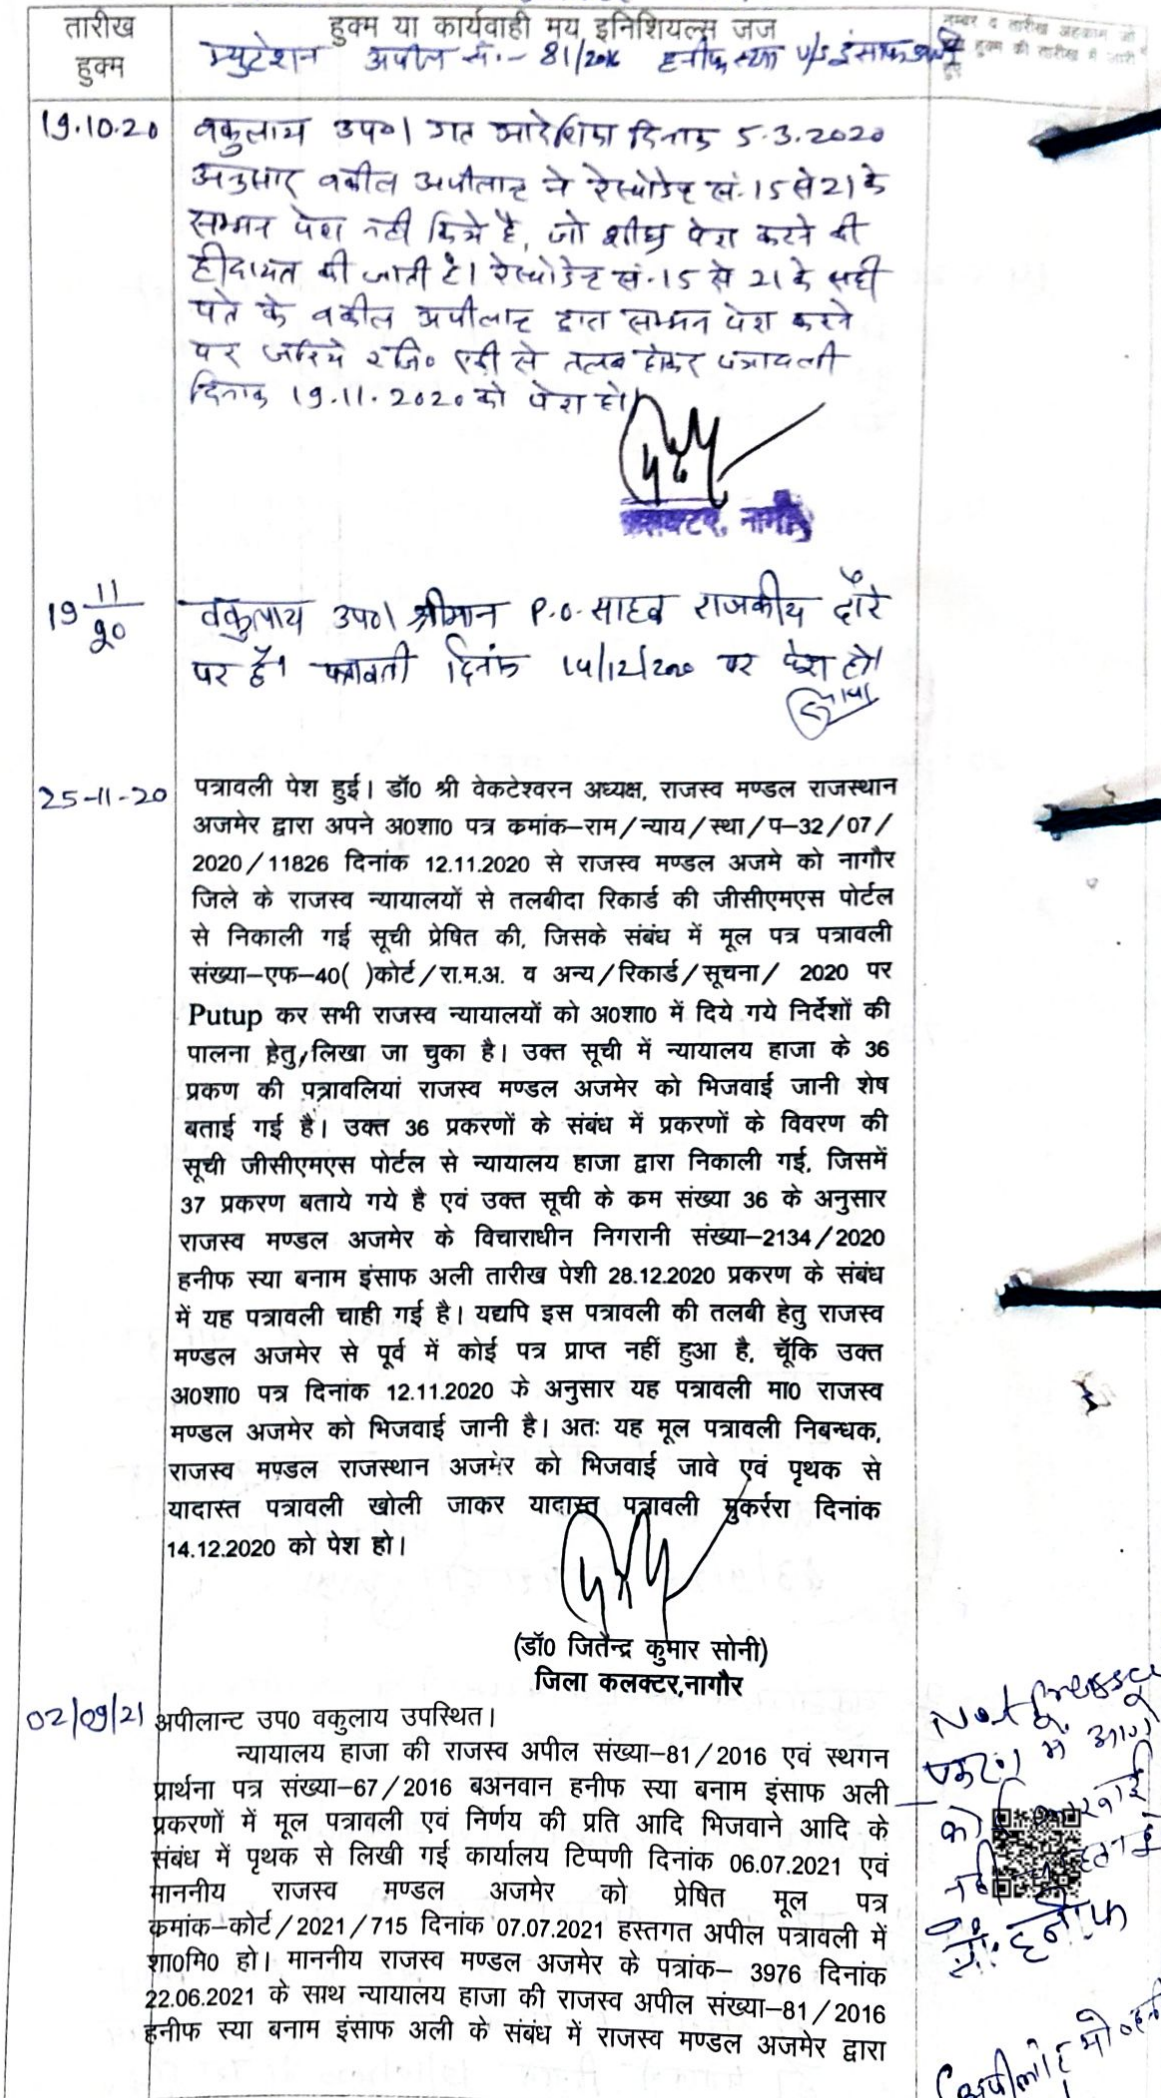 तारीख हुक्म
हुक्म या कार्यवाही मय इनिशियल्स जज
नम्बर व तारीख अहकाम जो
हुक्म की तारीख में जारी
हुए
म्युटेशन अपील सं.- 81/2016 हनीफ स्या v/s इंसाफ अली
19.10.20
वकुलाय उप०। गत आदेशिका दिनांक 5.3.2020
अनुसार वकील अपीलान्ट ने रेस्पोडेन्ट सं.15 से 21 के
सम्मन पेश नहीं किये है, जो शीघ्र पेश करने की
हीदायत की जाती है। रेस्पोडेन्ट सं.15 से 21 के सही
पते के वकील अपीलान्ट द्वारा सम्मन पेश करने
पर जरिये रजि० एडी से तलब होकर पत्रावली
दिनांक 19.11.2020 को पेश हो।
कलक्टर, नागौर
19 11/20
वकुलाय उप०। श्रीमान P.O. साहब राजकीय दौरे
पर है। पत्रावली दिनांक 14/12/2020 पर पेश हो।
25-11-20
पत्रावली पेश हुई। डॉ0 श्री वेकटेश्वरन अध्यक्ष, राजस्व मण्डल राजस्थान
अजमेर द्वारा अपने अ0शा0 पत्र कमांक–राम/न्याय/स्था/प–32/07/
2020/11826 दिनांक 12.11.2020 से राजस्व मण्डल अजमे को नागौर
जिले के राजस्व न्यायालयों से तलबीदा रिकार्ड की जीसीएमएस पोर्टल
से निकाली गई सूची प्रेषित की, जिसके संबंध में मूल पत्र पत्रावली
संख्या–एफ–40( )कोर्ट/रा.म.अ. व अन्य/रिकार्ड/सूचना/ 2020 पर
Putup कर सभी राजस्व न्यायालयों को अ0शा0 में दिये गये निर्देशों की
पालना हेतु,लिखा जा चुका है। उक्त सूची में न्यायालय हाजा के 36
प्रकण की पत्रावलियां राजस्व मण्डल अजमेर को भिजवाई जानी शेष
बताई गई है। उक्त 36 प्रकरणों के संबंध में प्रकरणों के विवरण की
सूची जीसीएमएस पोर्टल से न्यायालय हाजा द्वारा निकाली गई, जिसमें
37 प्रकरण बताये गये है एवं उक्त सूची के कम संख्या 36 के अनुसार
राजस्व मण्डल अजमेर के विचाराधीन निगरानी संख्या–2134/2020
हनीफ स्या बनाम इंसाफ अली तारीख पेशी 28.12.2020 प्रकरण के संबंध
में यह पत्रावली चाही गई है। यद्यपि इस पत्रावली की तलबी हेतु राजस्व
मण्डल अजमेर से पूर्व में कोई पत्र प्राप्त नहीं हुआ है, चूॅकि उक्त
अ0शा0 पत्र दिनांक 12.11.2020 के अनुसार यह पत्रावली मा0 राजस्व
मण्डल अजमेर को भिजवाई जानी है। अतः यह मूल पत्रावली निबन्धक,
राजस्व मण्डल राजस्थान अजमेर को भिजवाई जावे एवं पृथक से
यादास्त पत्रावली खोली जाकर यादास्त पत्रावली मुकर्ररा दिनांक
14.12.2020 को पेश हो।
(डॉ0 जितेन्द्र कुमार सोनी)
जिला कलक्टर,नागौर
02/09/21
अपीलान्ट उप0 वकुलाय उपस्थित।
न्यायालय हाजा की राजस्व अपील संख्या–81/2016 एवं स्थगन
प्रार्थना पत्र संख्या–67/2016 बअनवान हनीफ स्या बनाम इंसाफ अली
प्रकरणों में मूल पत्रावली एवं निर्णय की प्रति आदि भिजवाने आदि के
संबंध में पृथक से लिखी गई कार्यालय टिप्पणी दिनांक 06.07.2021 एवं
माननीय राजस्व मण्डल अजमेर को प्रेषित मूल पत्र
कमांक–कोर्ट/2021/715 दिनांक 07.07.2021 हस्तगत अपील पत्रावली में
शा0मि0 हो। माननीय राजस्व मण्डल अजमेर के पत्रांक– 3976 दिनांक
22.06.2021 के साथ न्यायालय हाजा की राजस्व अपील संख्या–81/2016
हनीफ स्या बनाम इंसाफ अली के संबंध में राजस्व मण्डल अजमेर द्वारा
Not
में आगे
हनीफ